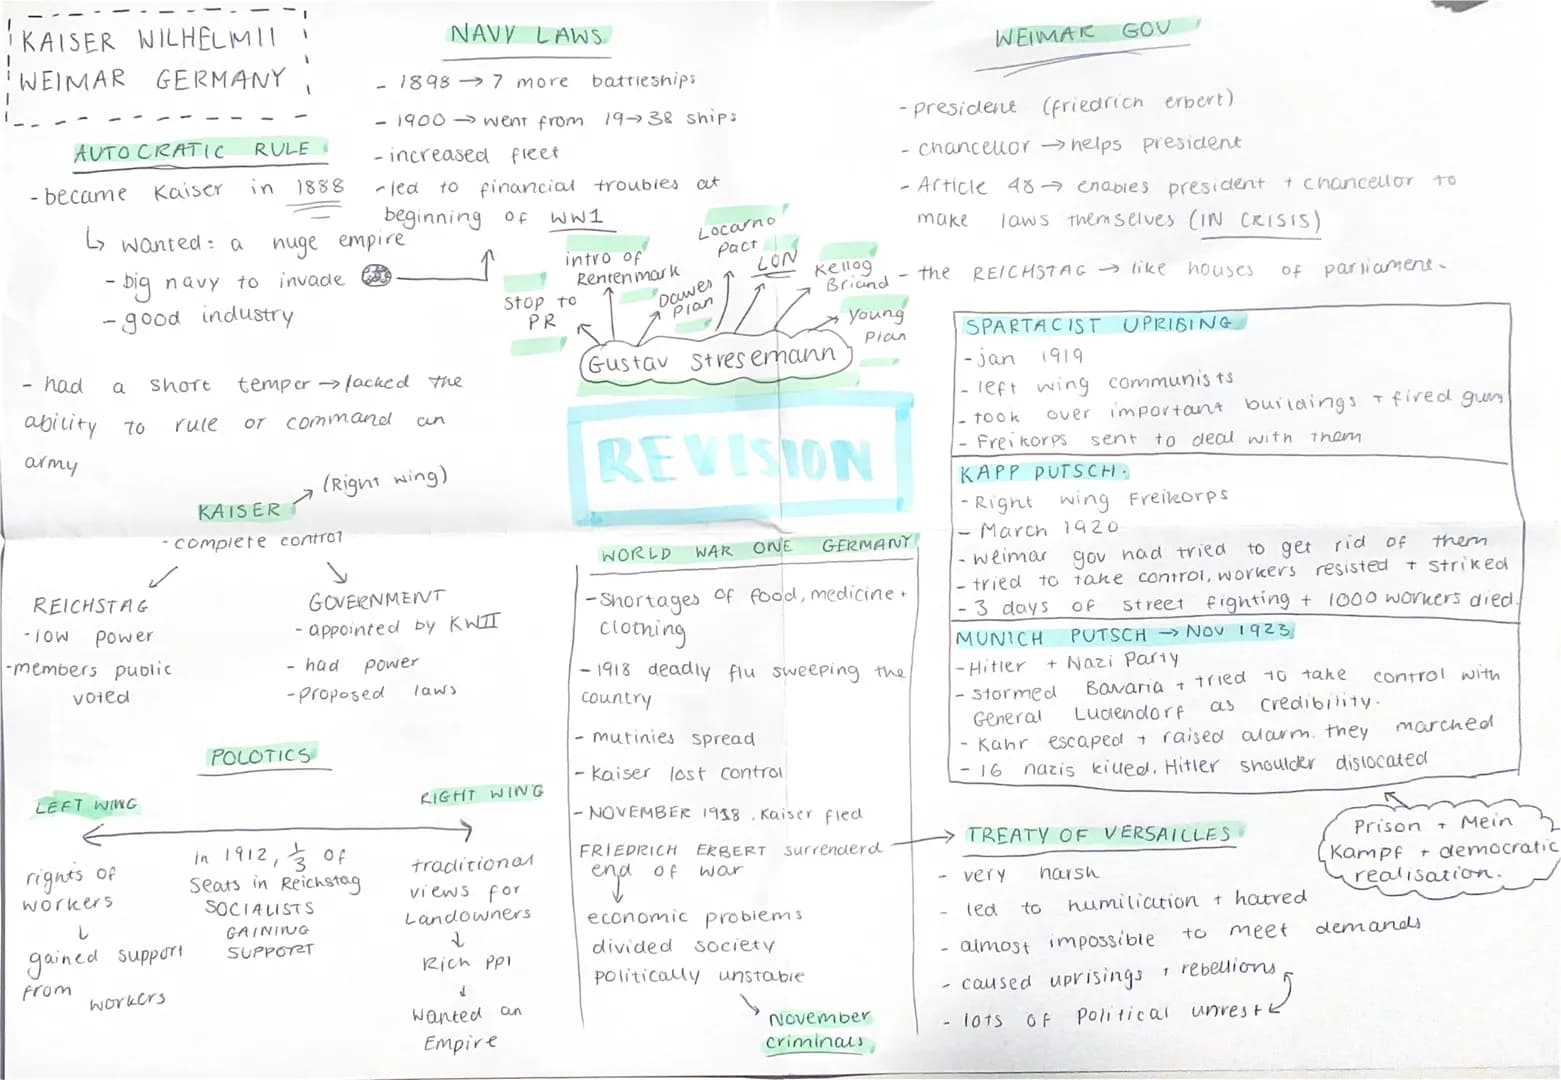 KAISER WILHELMII
WEIMAR GERMANY
AUTOCRATIC RULE
- became Kaiser in 1888
↳ wanted: a huge empire
- big navy to invade
- good industry
- had a short temper → lacked the
ability to rule or command an
army
NAVY LAWS
- 1898 → 7 more battleships
- 1900 → went from 19→38 ships
- increased fleet
- led to financial troubles at
beginning of WW1
Stop to
PR
intro of
Rentenmark
Dawes
Plan
Locarno
Pact
LON
Kellog
Briand
Young
Plan
Gustav Stresemann
REVISION
WEIMAR GOV
- president (friedrich erbert)
- chancellor → helps president
- Article 48 → enables president + chancellor to
make laws themselves (IN CRISIS)
- the REICHSTAG → like houses of parliament.
SPARTACIST UPRISING
- jan 1919
- left wing communists
- took over important buildings + fired guns
- Freikorps sent to deal with them
KAPP PUTSCH.
- Right wing Freikorps
- March 1920
- weimar gov had tried to get rid of them
- tried to take control, workers resisted + striked
- 3 days of street fighting + 1000 workers died.
MUNICH PUTSCH → Nov 1923
- Hitler + Nazi Party
- stormed Bavaria + tried to take control with
General Ludendorf as credibility.
- Kahr escaped + raised alarm. they marched
- 16 nazis killed. Hitler shoulder dislocated
Prison + Mein
Kampf + democratic
realisation.
KAISER → (Right wing)
- complete control
REICHSTAG
- low power
- members public
voted
GOVERNMENT
- appointed by KWII
- had power
- proposed laws
POLOTICS
LEFT WING
RIGHT WING
rights of
workers
↓
gained support
from workers
In 1912, 1/3 of
Seats in Reichstag
SOCIALISTS
GAINING
SUPPORT
traditional
views for
Landowners
↓
Rich ppl
↓
Wanted an
Empire
WORLD WAR ONE GERMANY
- Shortages of food, medicine +
clothing
- 1918 deadly flu sweeping the
country
- mutinies spread
- Kaiser lost control
- NOVEMBER 1918. Kaiser fled
FRIEDRICH ERBERT surrenderd
end of war
↓
economic problems
divided society
politically unstable
November
criminals
TREATY OF VERSAILLES
- very harsh
- led to humiliation + hatred
- almost impossible to meet demands
- caused uprisings + rebellions
- lots of Political unrest